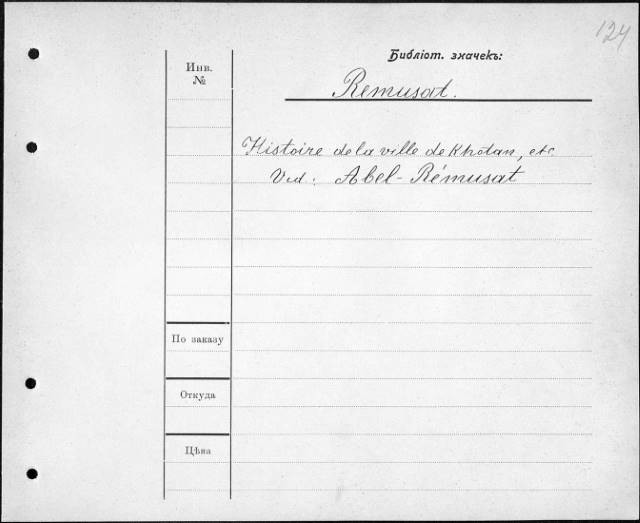 124
Библіот. значекъ:
Инв.
№
Remusat.
Histoire de la ville de Khotan, etc.
Vid: Abel-Rémusat
По заказу
Откуда
Цѣна